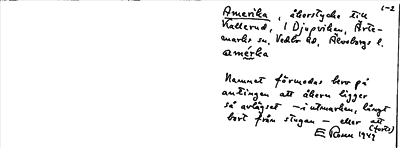 1-2
Amerika, åkerstycke till
Kallerud, i Djupviken, Ärte-
marks sn, Vedbo hd, Älvsborgs l.
amérka
Namnet förmodas bero på
antingen att åkern ligger
så avlägset – i utmarken, långt
bort från stugan – eller att
(forts)
E Rosin 1947